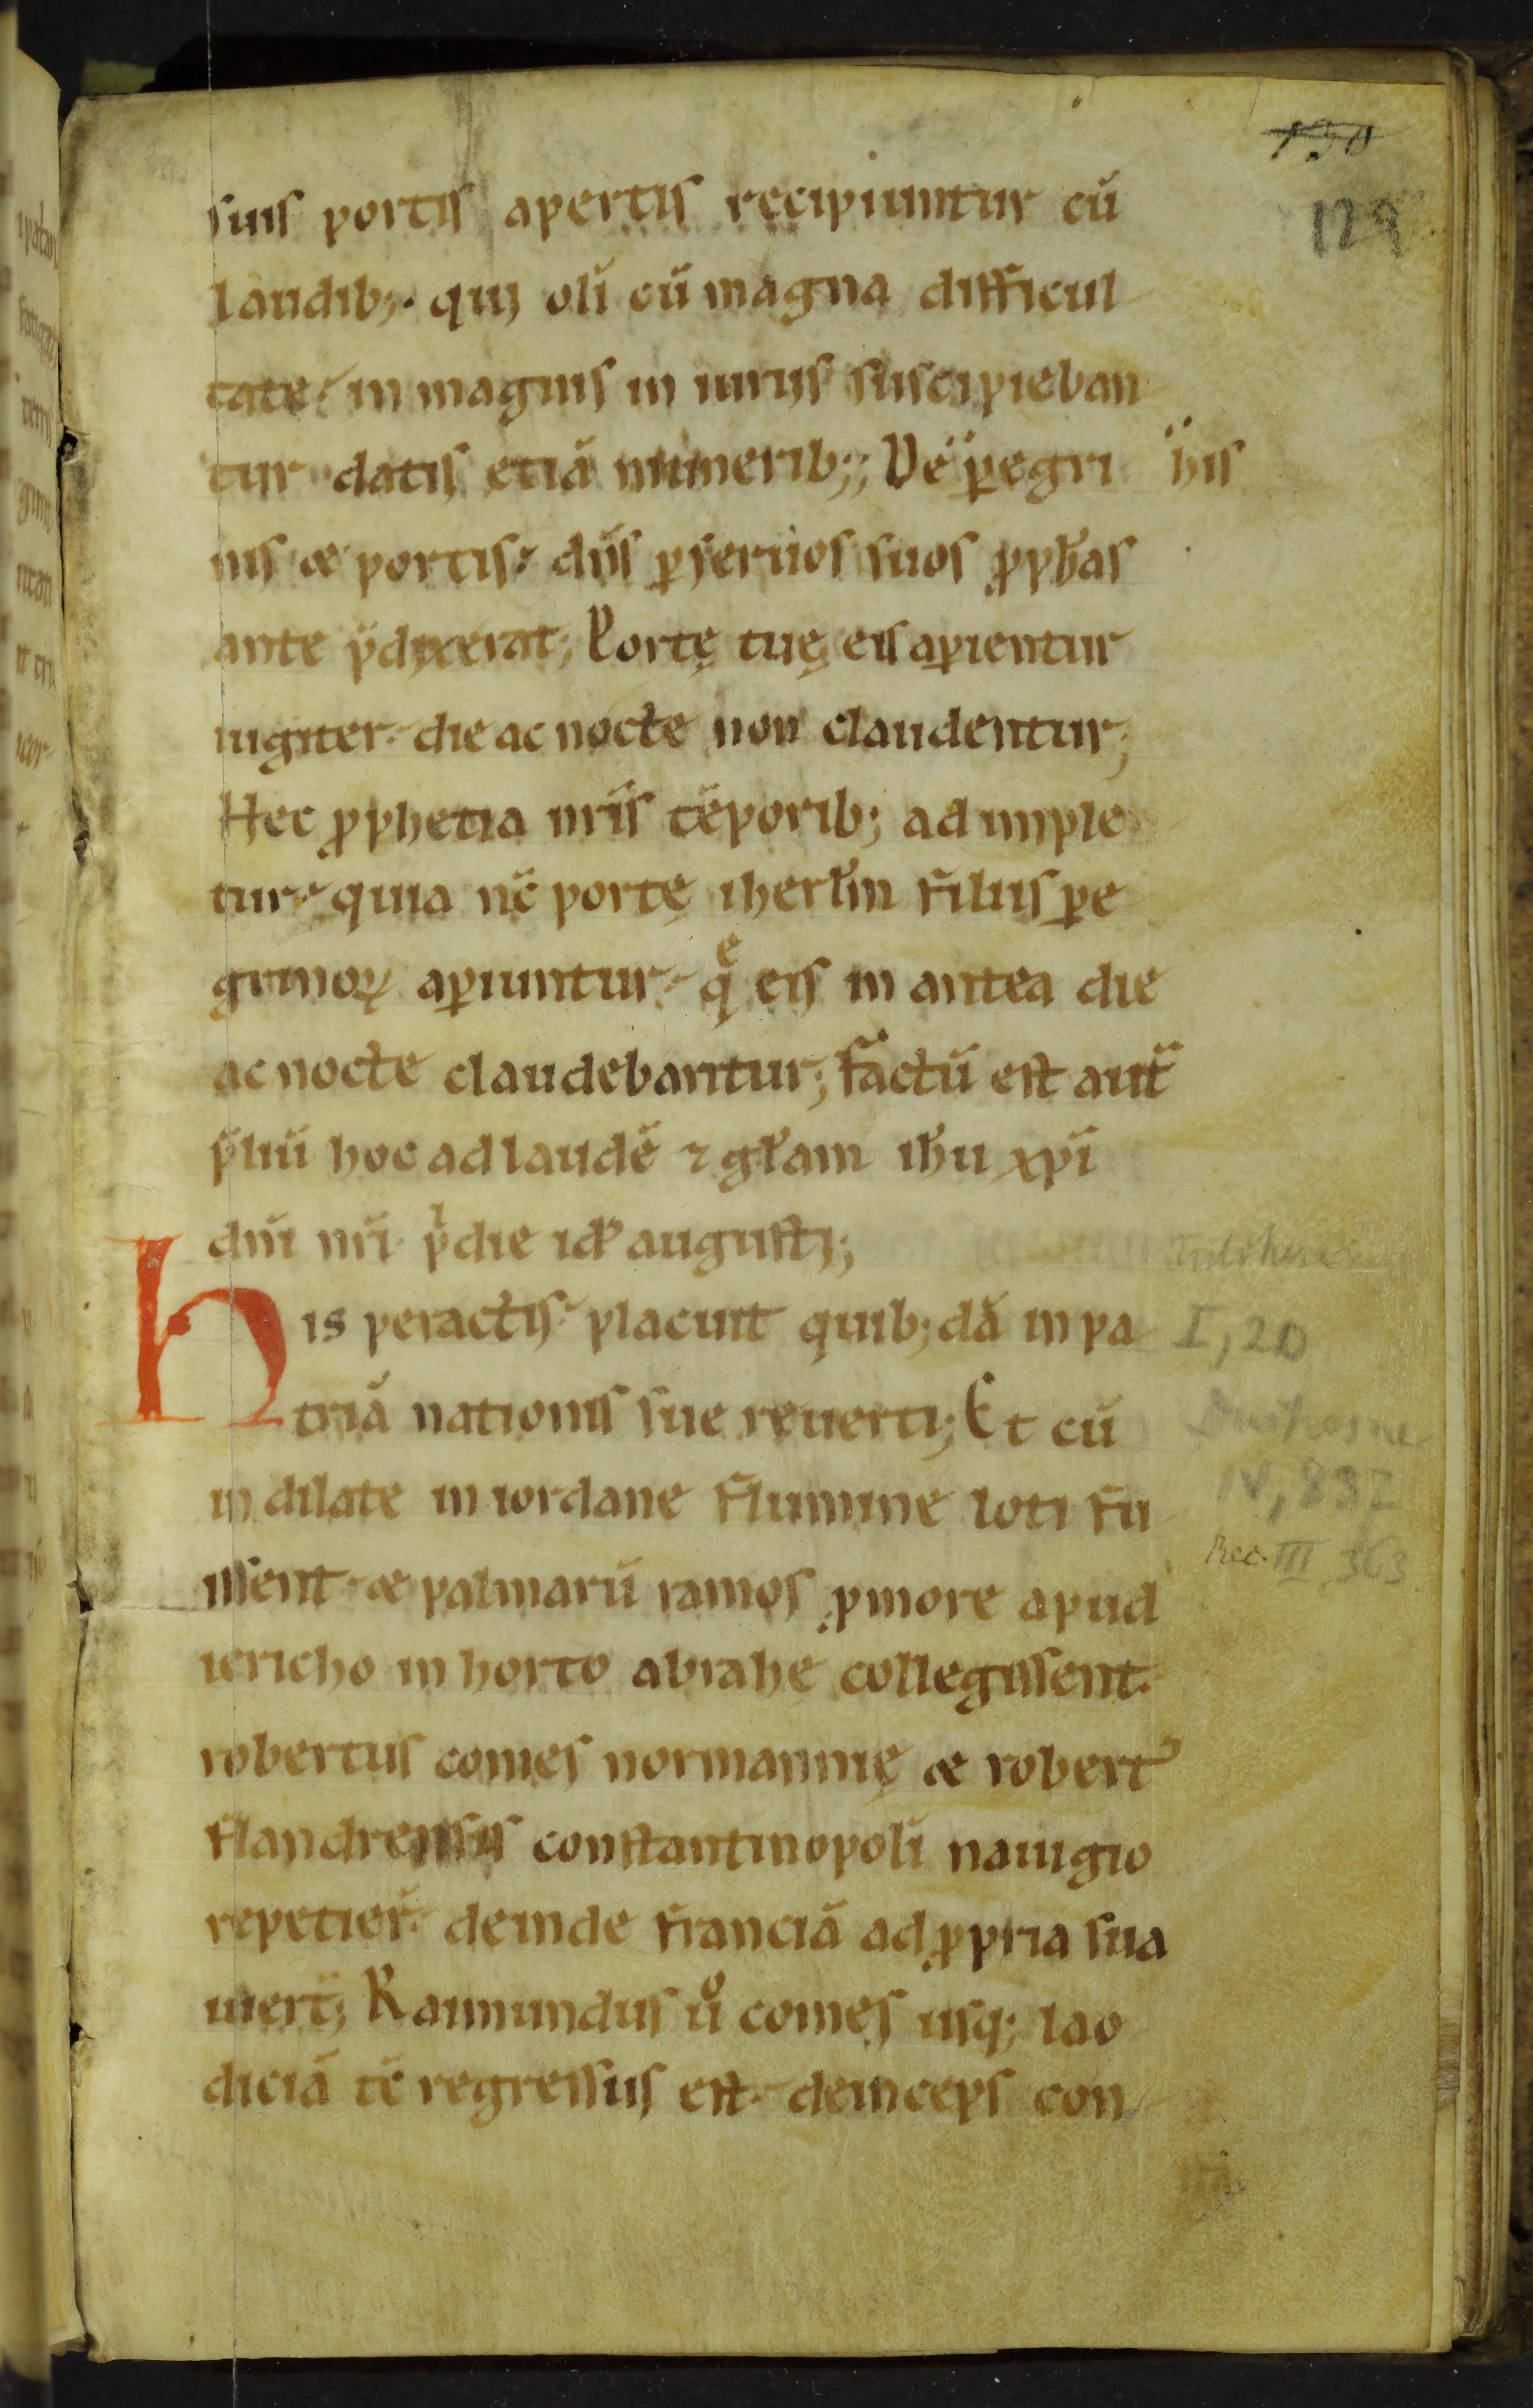 130
129
suis portis apertis recipiuntur cū
laudib;. qui olī cū magna difficul
tate. in magnis in iuriis suscipieban
tur datis etiā munerib;; De p̱egri his
nis & portis. dn̄s p̱ seruos suos ꝓph̄as
ante p̄dixerat; Portę tuę eis ap̱ientur
iugiter. die ac nocte non claudentur;
Hec ꝓphetia nr̄is tēporib; ad imple
tur. quia nc̄ portę iherl̄m filiis p̱e
grinoꝝ ap̱iuntur. qͤ eis in antea die
ac nocte claudebantur; factū est aut̄
p̄liū hoc ad laudē ⁊ gl̄am ih̄u xp̄i
dn̄i nr̄i pͥdie id' augusti;
His peractis. placuit quib;dā in pa
triā nationis sue reuerti; Et cū
in dilate in iordane flumine loti fu
issent. & palmarū ramos ꝓ more apud
iericho in horto abrahe collegissent.
robertus comes normannię & robert᾿
flandrensis constantinopolī nauigio
repetier̄. deinde franciā ad ꝓpria sua
uiert̄; Raimundus uͦ comes usq; lao
diciā tc̄ regressus est. deinceps con
I, 20
Duchesne
IV, 852
Rec. III 363